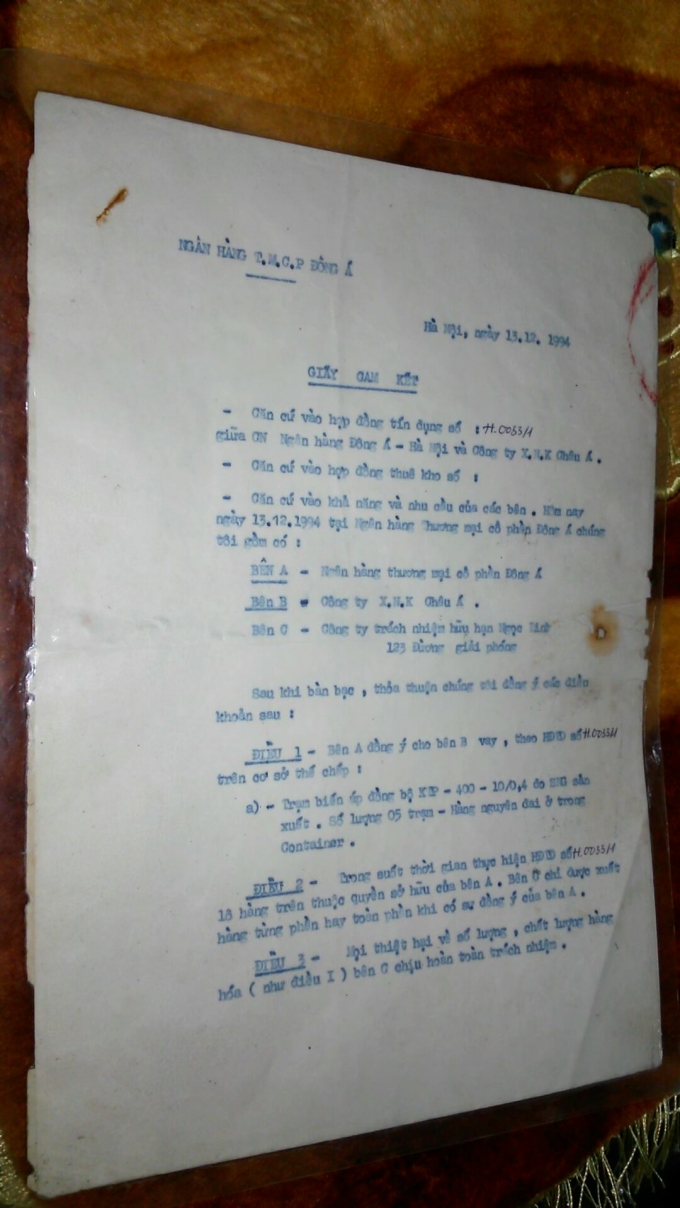 NGÂN HÀNG T.M.C.P ĐÔNG Á
Hà Nội, ngày 13.12. 1994
GIẤY CAM KẾT
- Căn cứ vào hợp đồng tín dụng số : H.0033/1
giữa CN Ngân hàng Đông Á - Hà Nội và Công ty X.N.K Châu Á .
- Căn cứ vào hợp đồng thuê kho số :
- Căn cứ vào khả năng và nhu cầu của các bên . Hôm nay
ngày 13.12.1994 tại Ngân hàng Thương mại cổ phần Đông Á chúng
tôi gồm có :
BÊN A - Ngân hàng thương mại cổ phần Đông Á
Bên B - Công ty X.N.K Châu Á .
Bên C - Công ty trách nhiệm hữu hạn Ngọc Linh
123 Đường giải phóng
Sau khi bàn bạc , thỏa thuận chúng tôi đồng ý các điều
khoản sau :
ĐIỀU 1 - Bên A đồng ý cho bên B vay , theo HĐTD số H.0033/1
trên cơ sở thế chấp :
a) - Trạm biến áp đồng bộ - 400 - 10/0,4 do sản
xuất . Số lượng 05 trạm - Hàng nguyên đai ở trong
Container .
ĐIỀU 2 - Trong suốt thời gian thực hiện HĐTD số H.0033/1
lô hàng trên thuộc quyền sở hữu của bên A . Bên C chỉ được xuất
hàng từng phần hay toàn phần khi có sự đồng ý của bên A .
ĐIỀU 3 - Mọi thiệt hại về số lượng , chất lượng hàng
hóa ( như điều I ) bên C chịu hoàn toàn trách nhiệm .